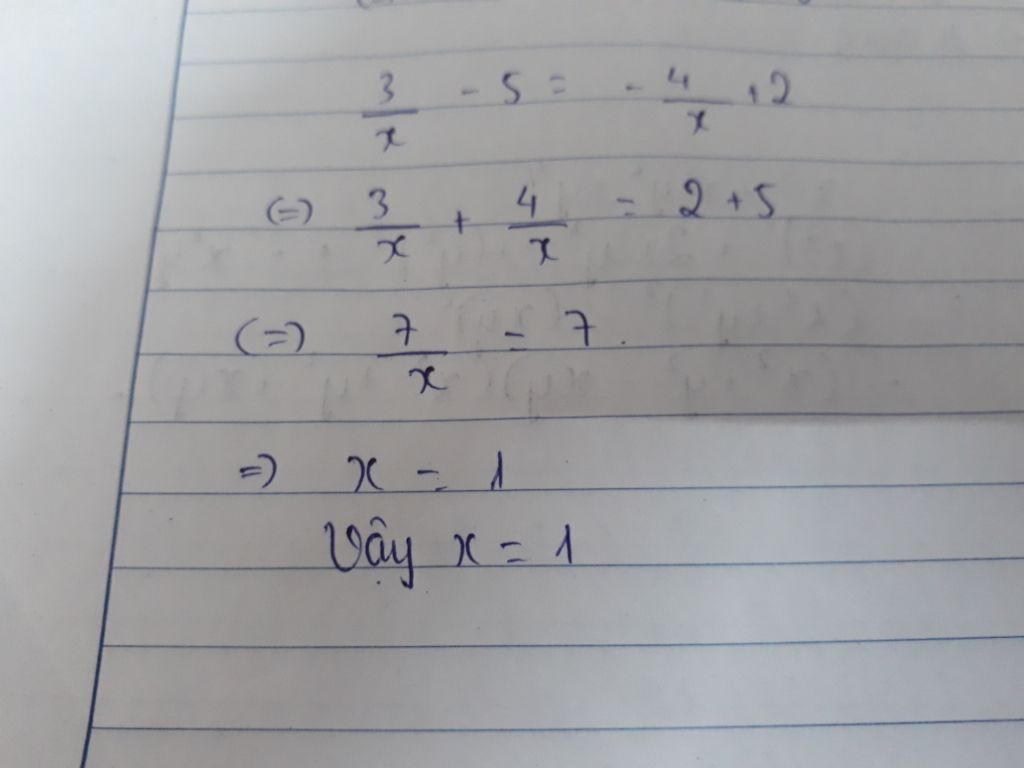 3/x - 5 = - 4/x + 2
(=) 3/x + 4/x = 2 + 5
(=) 7/x = 7.
=) x = 1
Vậy x = 1